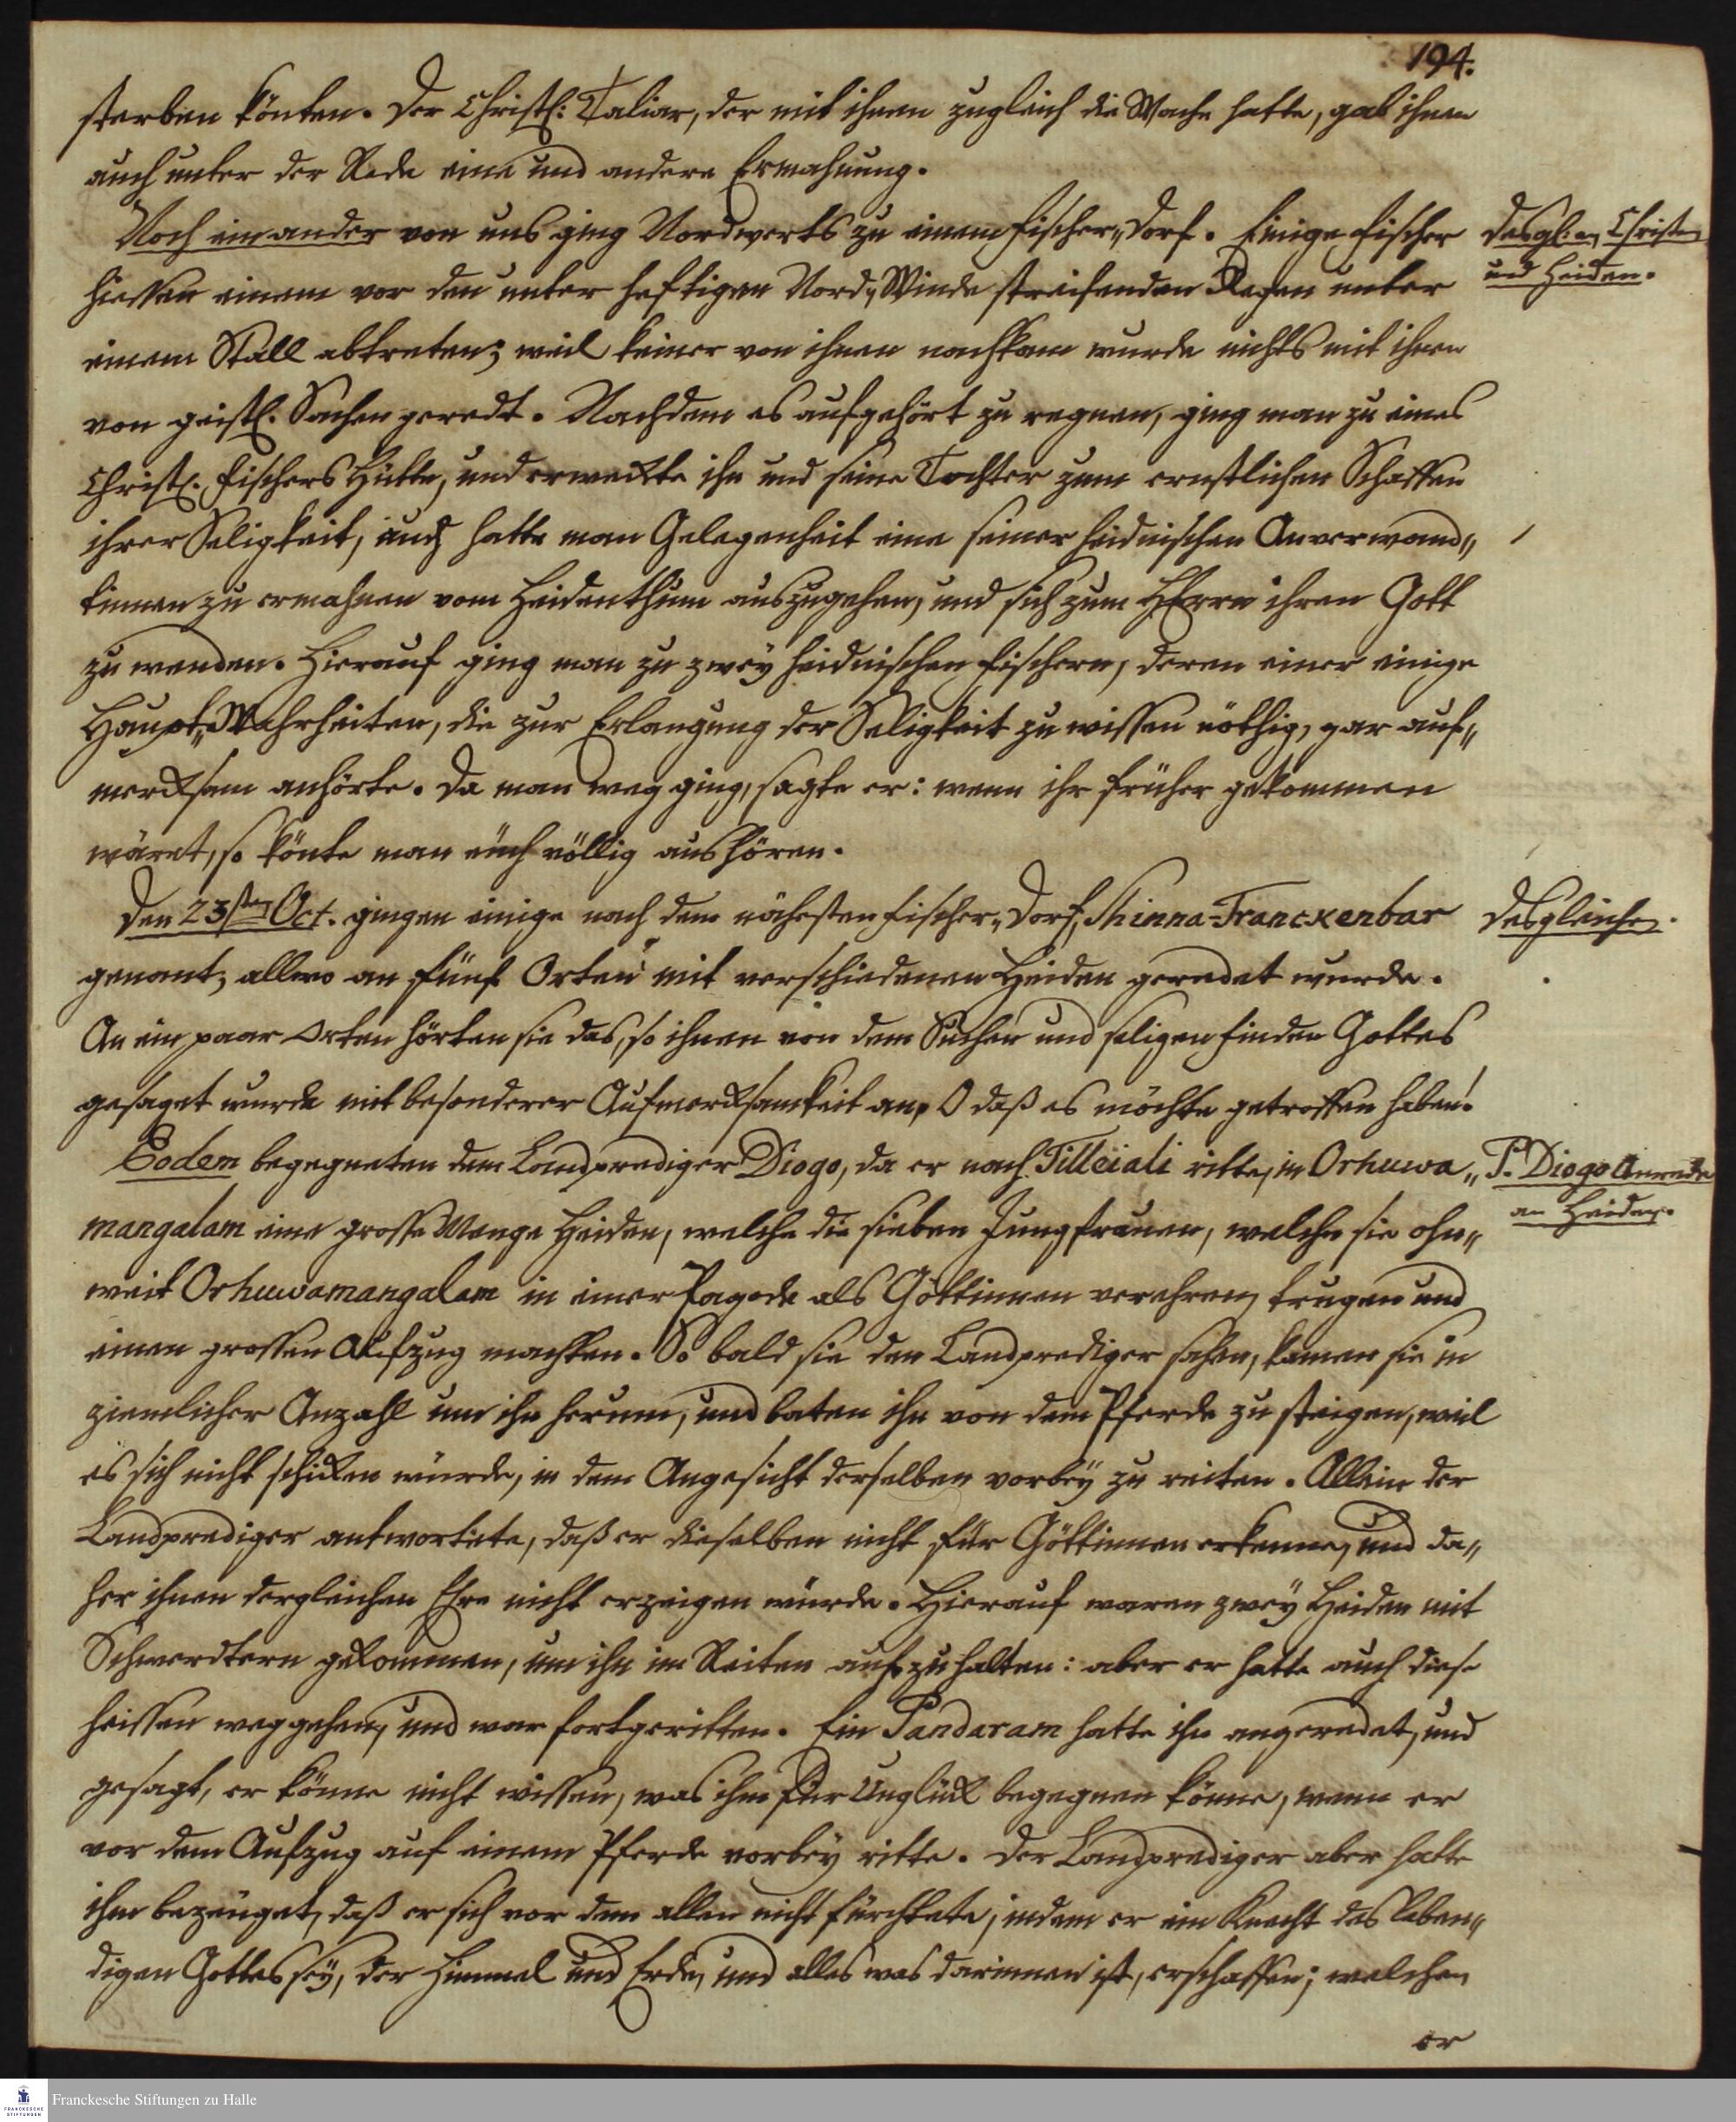 194.
sterben könten. Der Christl: Taliar, der mit ihnen zugleich die Wache hatte, gab ihnen
auch unter der Rede eine und andere Ermahnung.
Noch ein ander von uns ging Nordwerts zu einem Fischer„Dorf. Einige Fischer
hiessen einem vor den unter heftigen Nord„Winde streifenden Regen unter
einem Stall abtreten; weil keiner von ihnen nachkam wurde nichts mit ihnen
von geistl. Sachen geredt. Nachdem es aufgehört zu regnen, ging man zu eines
Christl. Fischers Hütte, und erweckte ihn und seine Tochter zum ernstlichen Schaffen
ihrer Seligkeit, auch hatte man Gelegenheit eine seiner heidnischen Anverwand„
tinnen zu ermahnen vom Heidenthum auszugehen, und sich zum HErrn ihren Gott
zu wenden. Hierauf ging man zu zwey heidnischen Fischern, deren einer einige
Haupt„Wahrheiten, die zur Erlangung der Seligkeit zu wissen nöthig, gar auf„
mercksam anhörte. Da man weg ging, sagte er: wenn ihr früher gekommen
wäret, so könte man euch völlig aushören.
Den 23sten Oct. gingen einige nach dem nähesten Fischer„Dorf, Shinna-Franckenbar
genant, allwo an fünf Orten mit verschiedenen Heiden geredet wurde.
An ein paar Orten hörten sie das, so ihnen von dem Suchen und seligen finden Gottes
gesaget wurde mit besonderer Aufmercksamkeit an. O daß es möchte getroffen haben!
Eodem begegneten dem Landprediger Diogo, da er nach Tilleiali ritte, in Orhuwa„
mangalam eine grosse Menge Heiden, welche die sieben Jungfrauen, welche sie ohn„
weit Orhuwamangalam in einer Pagode als Göttinnen verehren, trugen und
einen grossen Aufzug machten. So bald sie den Landprediger sahen, kamen sie in
ziemlicher Anzahl um ihn herum, und baten ihn von dem Pferde zu steigen, weil
es sich nicht schicken würde, in dem Angesicht derselben vorbey zu reiten. Allein der
Landprediger antwortete, daß er dieselben nicht für Göttinnen erkenne, und da„
her ihnen dergleichen Ehre nicht erzeigen würde. Hierauf waren zwey Heiden mit
Schwerdtern gekommen, um ihn im Reiten aufzuhalten: aber er hatte auch diese
heissen weggehen, und war fortgeritten. Ein Pandaram hatte ihn angeredet, und
gesagt, er könne nicht wissen, was ihm für Unglück begegnen könne, wenn er
vor dem Aufzug auf einem Pferde vorbey ritte. Der Landprediger aber hatte
ihm bezeuget, daß er sich vor dem allen nicht fürchtete, indem er ein Knecht des leben„
digen Gottes sey, der Himmel und Erde, und alles was darinnen ist, erschaffen; welchen
er
desgl. an Christen
und Heiden.
desgleichen.
P. Diogo Anrede
an Heiden.
Franckesche Stiftungen zu Halle
FRANCKESCHE
STIFTUNGEN